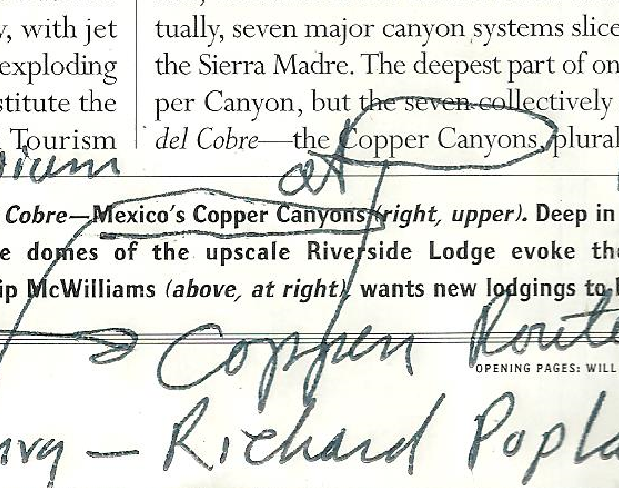 y, with jet
exploding
stitute the
Tourism
tually, seven major canyon systems slice
the Sierra Madre. The deepest part of on
per Canyon, but the seven collectively
del Cobre—the Copper Canyons, plural
at
Cobre—Mexico's Copper Canyons (right, upper). Deep in
e domes of the upscale Riverside Lodge evoke the
ip McWilliams (above, at right), wants new lodgings to b
Copper Route
OPENING PAGES: WILL
— Richard Popla